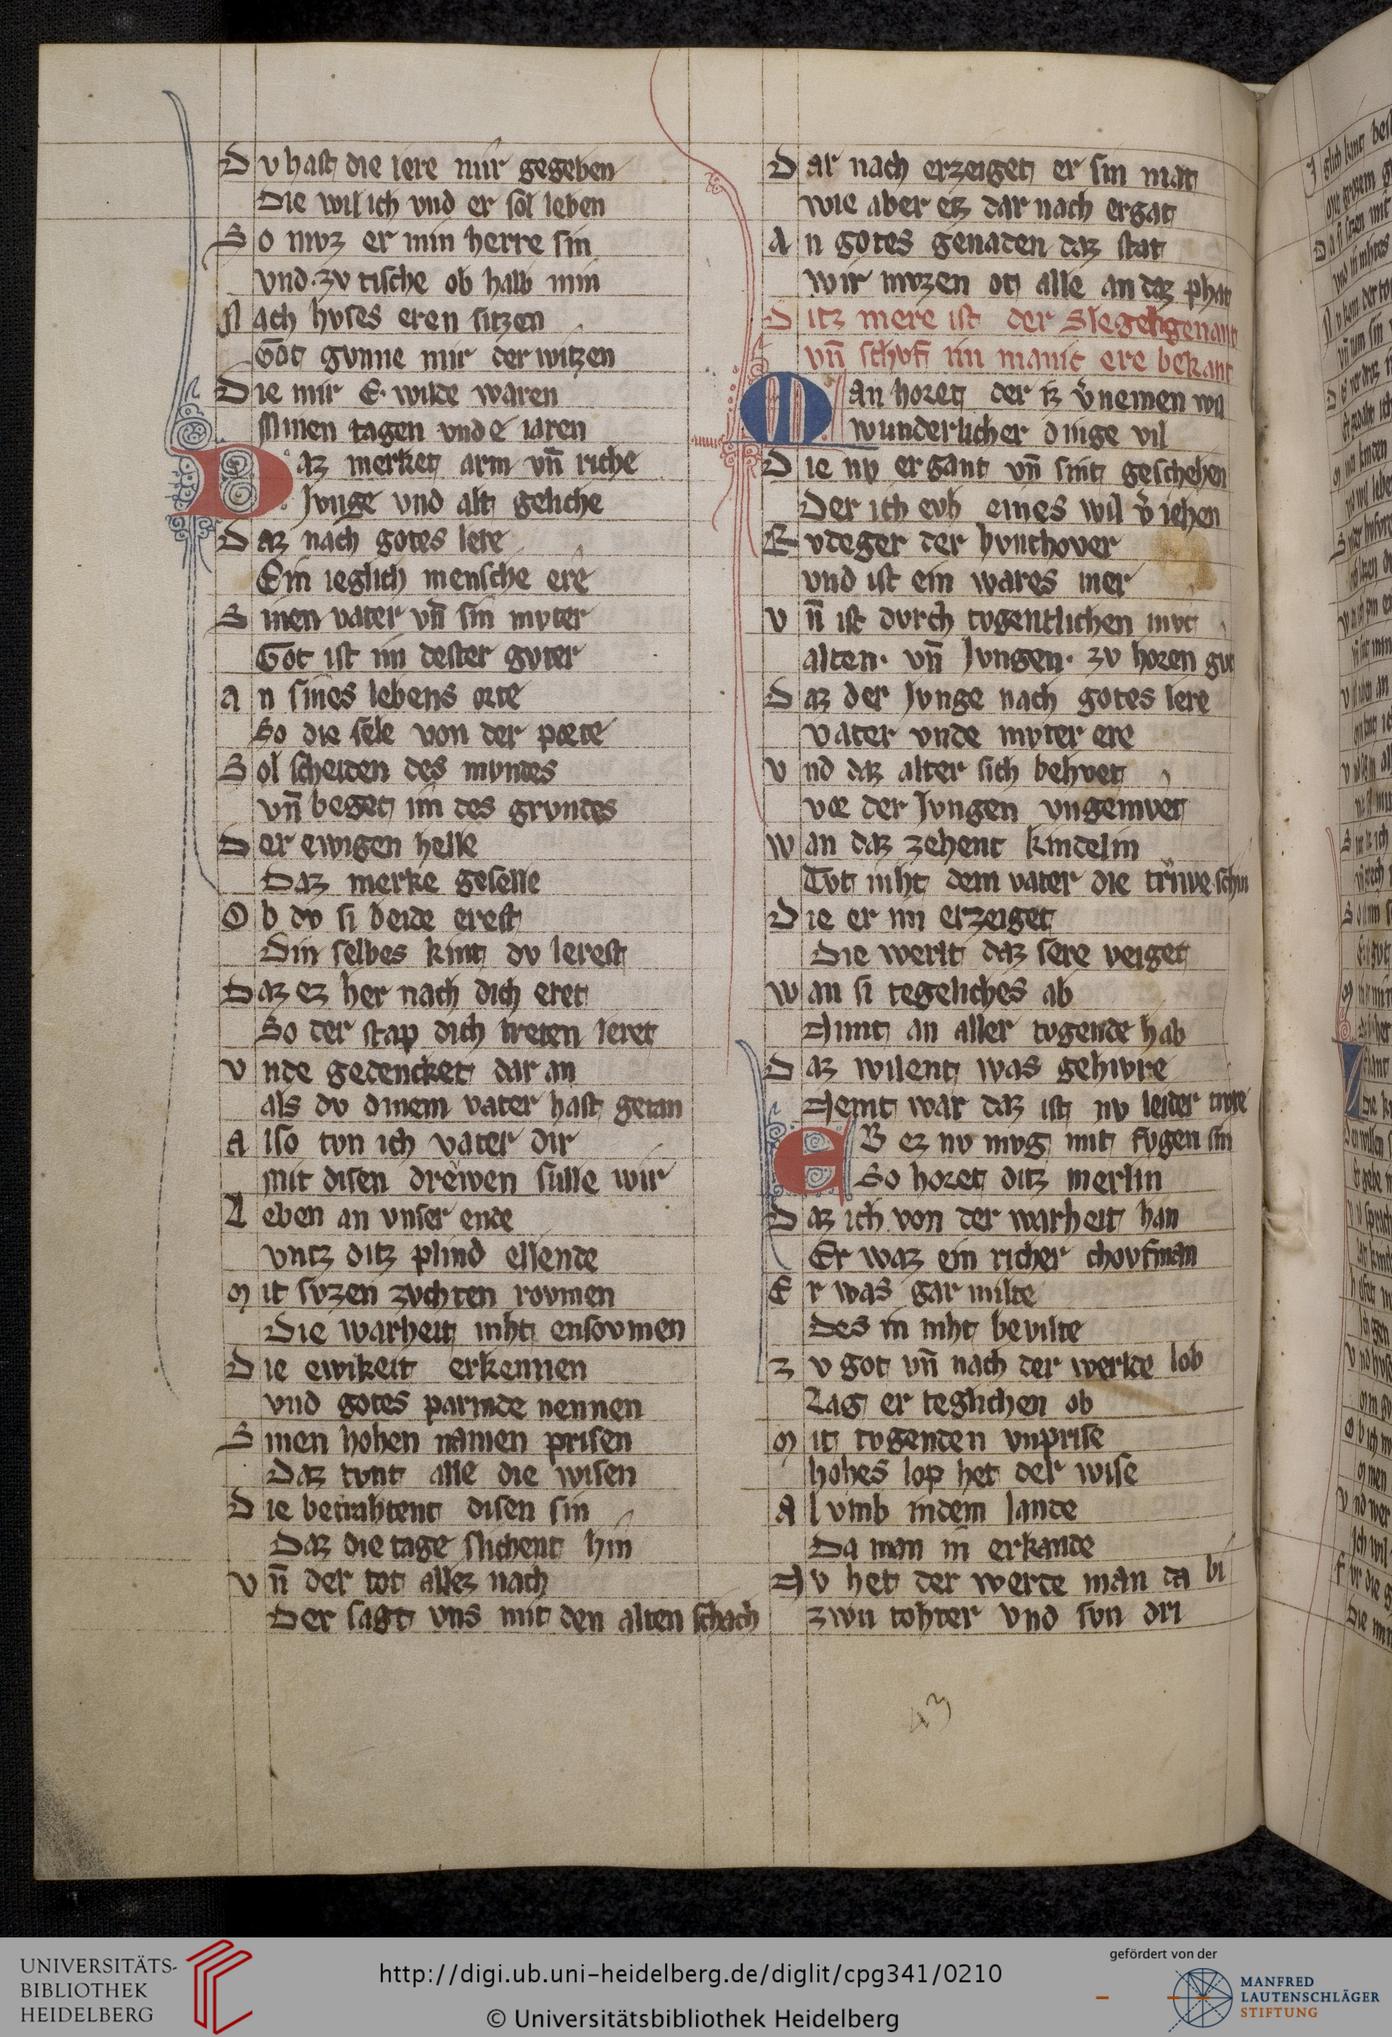 Dv hast die lere mir gegeben
Die wil ich vnd er sol leben
So mvz er min herre sin
vnd zv tische ob halb min
Nach hvses eren sitzen
Got gvnne mir der witzen
Die mir E wilde waren
Minen tagen vnde iaren
Daz merket arm vn̄ riche
Jvnge vnd alt geliche
Daz nach gotes lere
Ein ieglich mensche ere
Sinen vater vn̄ sin mvter
Got ist im dester gvter
an sines lebens orte
So die sele von der porte
Sol scheiden des mvndes
vn̄ beget im des grvndes
Der ewigen helle
Daz merke geselle
Ob dv si beide erest
Din selbes kint dv lerest
Daz ez her nach dich eret
So der stap dich treten leret
vnde gedencket dar an
als dv dinem vater hast getan
Also tvn ich vater dir
mit disen drewen sülle wir
Leben an vnser ende
vntz ditz plind ellende
mit svzen zvchten rovmen
Die warheit niht ensovmen
Die ewikeit erkennen
vnd gotes parmde nennen
Sinen hohen namen prisen
Daz tvnt alle die wisen
Die betrahtent disen sin
Daz die tage slichent hin
vn̄ der tot allez nach
Der sagt vns mit den alten schach
Dar nach erzeiget er sin mat
wie aber ez dar nach ergat
An gotes genaden daz stat
wir mvzen ot alle an daz phat
Ditz mere ist der Slegel genant
vn̄ schvf im manic ere bekant
Man horet der iz v̾nemen wil
wunderlicher dinge vil
Die nv ergant vn̄ sint geschehen
Der ich evh eines wil v̾iehen
Rvdeger der hvnthover
vnd ist ein wares mer
vn̄ ist dvrch tvgentlichen mvt
alten vn̄ Jvngen zv horen gvt
Daz der Jvnge nach gotes lere
vater vnde mvter ere
vnd daz alter sich behvet
vor der Jvngen vngemvet
wan daz zehent kindelin
Tvt niht dem vater die triwe schin
Die er im erzeiget
Die werlt daz sere veiget
wan si tegeliches ab
Nimt an aller tvgende hab
Daz wilent was gehivre
Nemt war daz ist nv leider tivre
Eb ez nv mvg mit fvgen sin
So horet ditz merlin
Daz ich von der warheit han
Er waz ein richer chovfman
Er was gar milte
des in niht bevilte
zv got vn̄ nach der werlde lob
Lag er teglichen ob
mit tvgenden vnprise
hohes lop het der wise
Al vmb in dem lande
Da man in erkande
Nv het der werde man da bi
zwu tohter vnd svn dri
43
UNIVERSITÄTS-
BIBLIOTHEK
HEIDELBERG
http://digi.ub.uni-heidelberg.de/diglit/cpg341/0210
© Universitätsbibliothek Heidelberg
gefördert von der
MANFRED
LAUTENSCHLÄGER
STIFTUNG